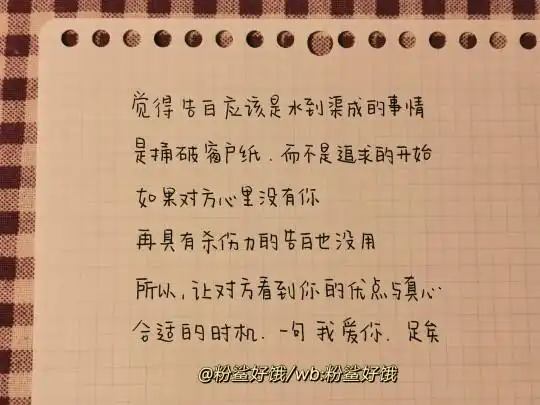 觉得告白应该是水到渠成的事情
是捅破窗户纸.而不是追求的开始
如果对方心里没有你
再具有杀伤力的告白也没用
所以,让对方看到你的优点与真心
合适的时机.一句我爱你.足矣
@粉鲨好饿/wb:粉鲨好饿